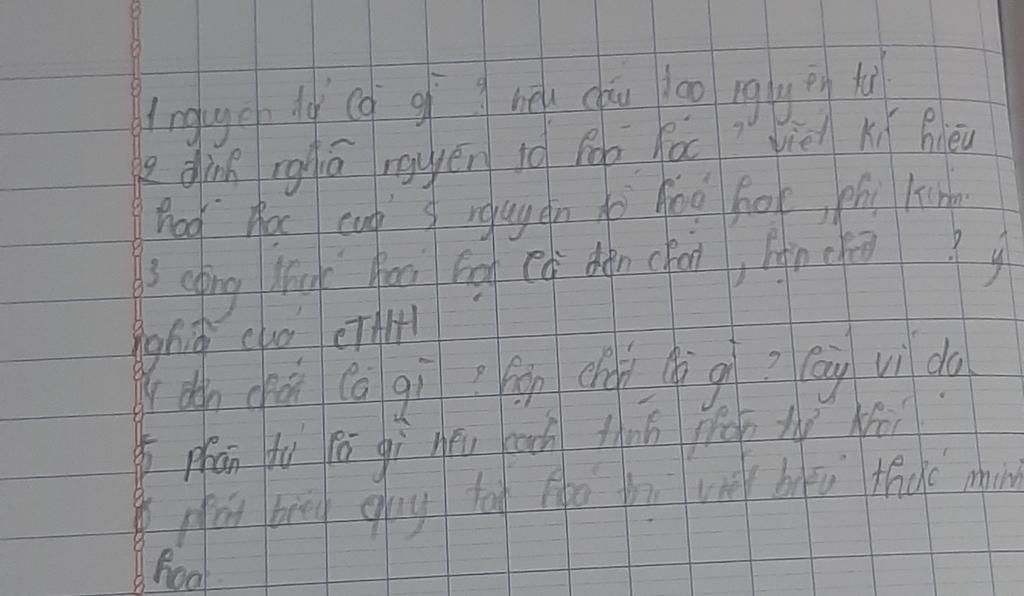 1 nguyên tử là gì ? nêu cấu tạo nguyên tử
2 định nghĩa nguyên tố hóa học ? viết kí hiệu
hoá học của 5 nguyên tố hóa học, phi kim
3 công thức hoá học của đơn chất, hợp chất ? ý
nghĩa của CTHH
4 đơn chất là gì ? hợp chất là gì ? lấy ví dụ
5 phân tử là gì nêu cách tính phân tử khối
6 phát biểu quy tắc hóa trị viết biểu thức minh
hoạ